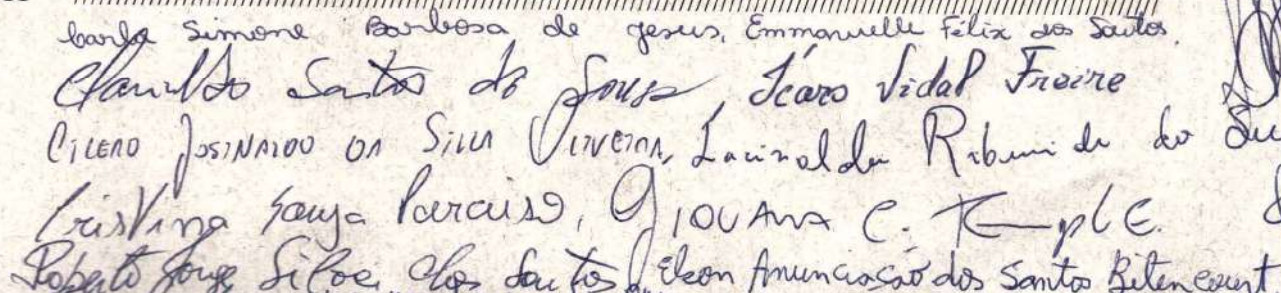 Carla Simone Barbosa de Jesus, Emmanuelle Félix dos Santos.
Clarildo Santos de Souza, Ícaro Vidal Freire
Cicero Josinaldo da Silva Oliveira, Lucinalda Ribeiro do
Cristina Souza Paraiso, Giovana C. Temple.
Roberto Jorge Silva dos Santos, Elson Anunciação dos Santos Bitencourt.